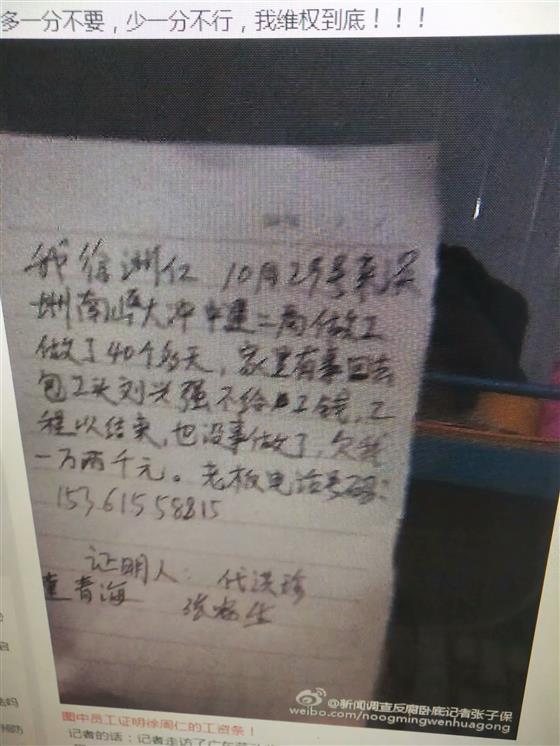 多一分不要，少一分不行，我维权到底！！！
我徐洲仁 10月29号来深
圳南山大冲中建二局做工
做了40个多天，家里有事回去
包工头刘兴强不给工钱，工
程以结束，也没事做了，欠我
一万两千元。老板电话号码：
15361558815
证明人： 代洪珍
青海
@新闻调查反腐卧底记者张子保
weibo.com/noogmingwenhuagong
图中员工证明徐周仁的工资条！